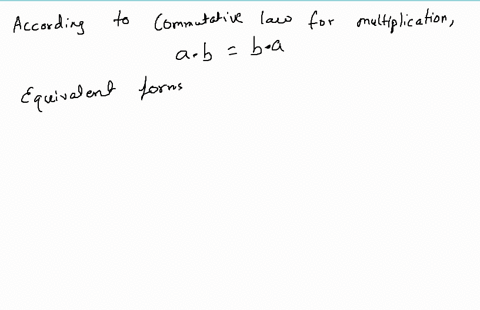 According to Commutative law for multiplication,
a·b = b·a
Equivalent forms